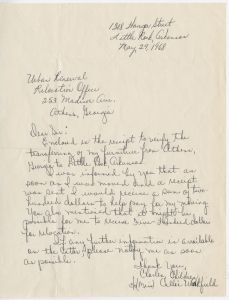 1318 Hanger Street
Little Rock, Arkansas
May 29, 1968
Urban Renewal
Relocation Office
253 Madison Ave.
Athens, Georgia
Dear Sir:
Enclosed is the receipt to verify the
transfering of my furniture from Athens,
Georgia to Little Rock, Arkansas.
I was informed by you that as
soon as I was moved and a receipt
was sent I would receive a sum of two
hundred dollars to help pay for my moving.
You also mentioned that it might be
possible for me to receive five hundred dollars
for relocation.
If any further information is available
on the latter please notify me as soon
as possible.
Thank You,
Charles